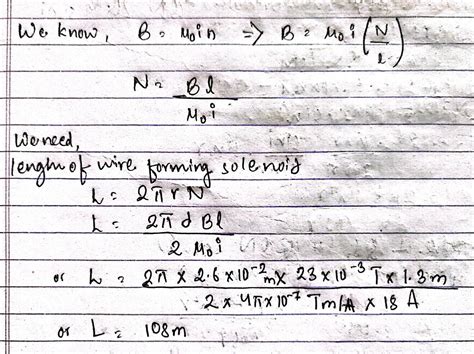 We know, B = μ₀in ⇒ B = μ₀i(N/l)
N = Bl/μ₀i
We need,
length of wire forming solenoid
L = 2πrN
L = 2πdBl/2μ₀i
or L = 2π × 2.6×10⁻²m × 23×10⁻³T × 1.3m/2×4π×10⁻⁷Tm/A × 18A
or L = 108m